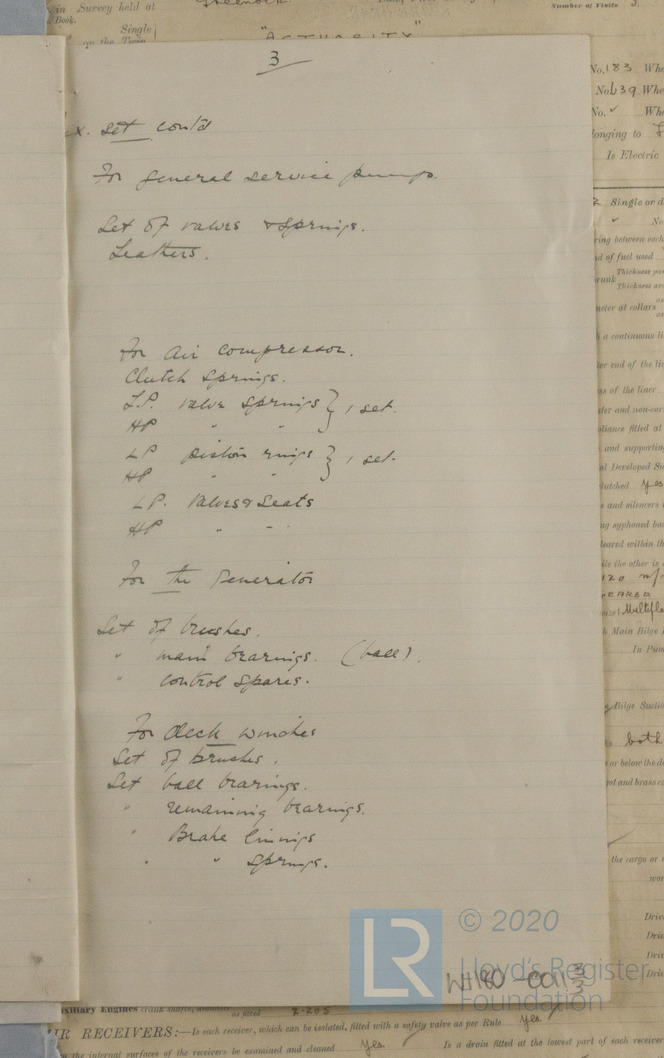 in Survey held at
Book.
Number of Visits 3.
Single
on the Twin
"AUTHORITY"
3
No. 183 Whe
No. 639 Whe
No. ✓ Whe
longing to
Is Electric
x. Set cont'd
For general service pumps.
Set of valves & springs.
Leathers.
For Air compressor.
Clutch springs.
L.P. valve springs } 1 set.
HP " "
LP piston rings } 1 set.
HP " "
LP. Valves & Seats
HP " "
For the Generator
Set of brushes.
" main bearings. (ball).
" control spares.
For deck winches
Set of brushes.
Set ball bearings.
" remaining bearings.
" Brake linings
" " springs.
Single or d
ring between each
d of fuel used
Thickness
Thickness
meter at collars
a continuous li
ter end of the
s of the liner
and supporting
al Developed Su
lutched yes
and silencers
ng syphoned
leared within th
ile the other is
120
GEARED
Main Bilge
In Pum
Bilge Suctio
both
or below the de
et and brass
the cargo or
wor
Driv
Driv
Driv
Driv
LR
© 2020
Lloyd's Register
Foundation
W1180-0011 3/3
uxiliary Engines crank shafts,
as fitted
IR RECEIVERS:—Is each receiver, which can be isolated, fitted with a safety valve as per Rule Yes
the internal surfaces of the receivers be examined and cleaned Yes. Is a drain fitted at the lowest part of each receiver